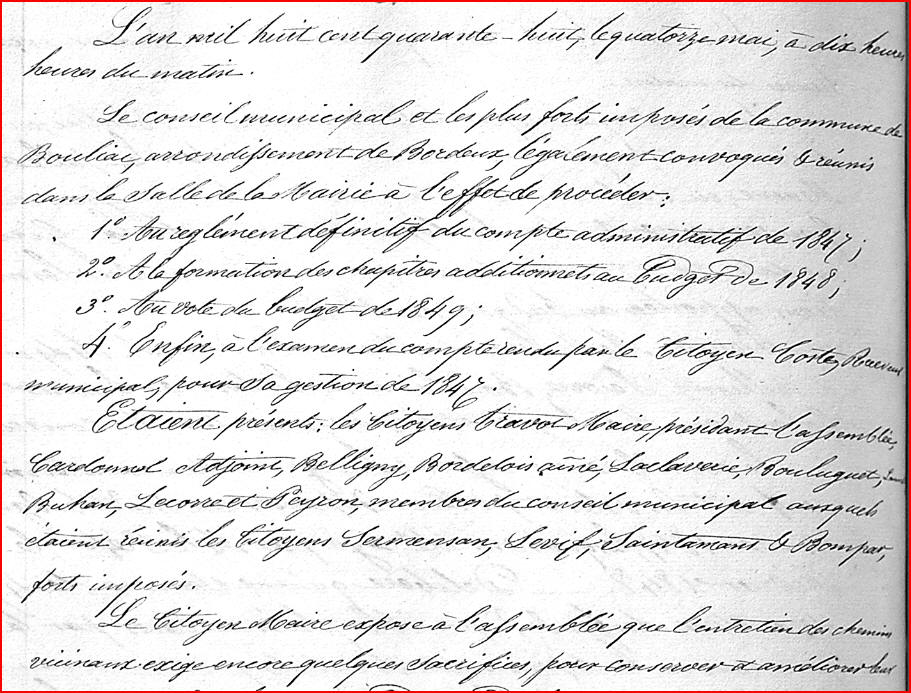 L'an mil huit cent quarante-huit, le quatorze mai, à dix heures
heures du matin.
Le conseil municipal et les plus forts imposés de la commune de
Bouliac, arrondissement de Bordeux, légalement convoqués & réunis
dans la Salle de la Mairie à l'effet de procéder:
1° Au reglément définitif du compte administratif de 1847;
2° A la formation des chapitres additionnels au Budget de 1848;
3° Au vote du budget de 1849;
4° Enfin, à l'examen du compte rendu par le Citoyen Coste,
municipal, pour sa gestion de 1847.
Etaient présents: les Citoyens Travot Maire, président l'assemblée,
Cardonnel Adjoint, Belligny, Bordelois aîné, Laclaverie, Bouluguet,
Buhan, Lecorre et Peyron, membres du conseil municipal auxquels
étaient réunis les Citoyens Sermensan, Levif, Saintamans & Bompar,
forts imposés.
Le Citoyen Maire expose à l'assemblée que l'entretien des chemins
vicinaux exige encore quelques sacrifices, pour conserver et améliorer leur